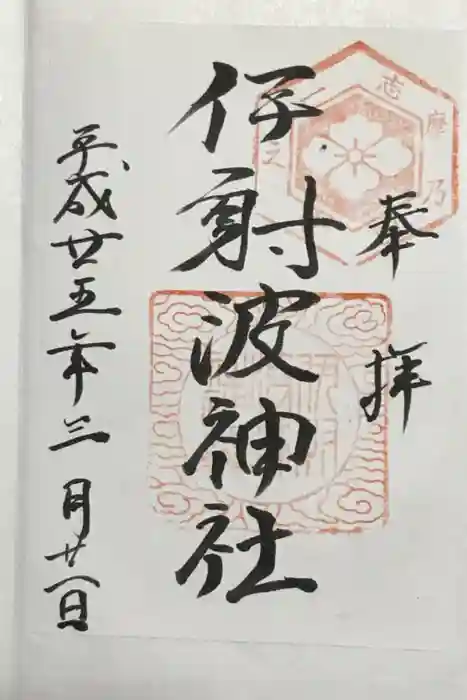 奉拝
伊射波神社
平成廿五年三月廿八日
志摩乃
之